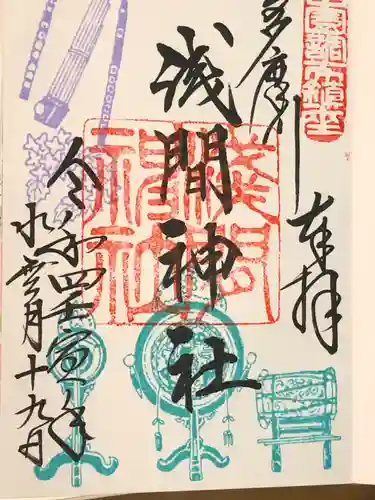 多摩川
奉拝
浅間神社
令和四壬寅年
水無月十九日
浅間
神社